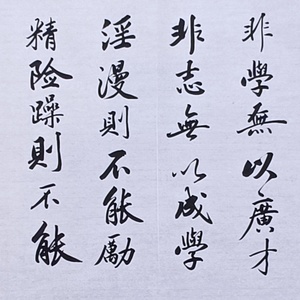 非學無以廣才
非志無以成學
淫漫則不能勵
精险躁則不能